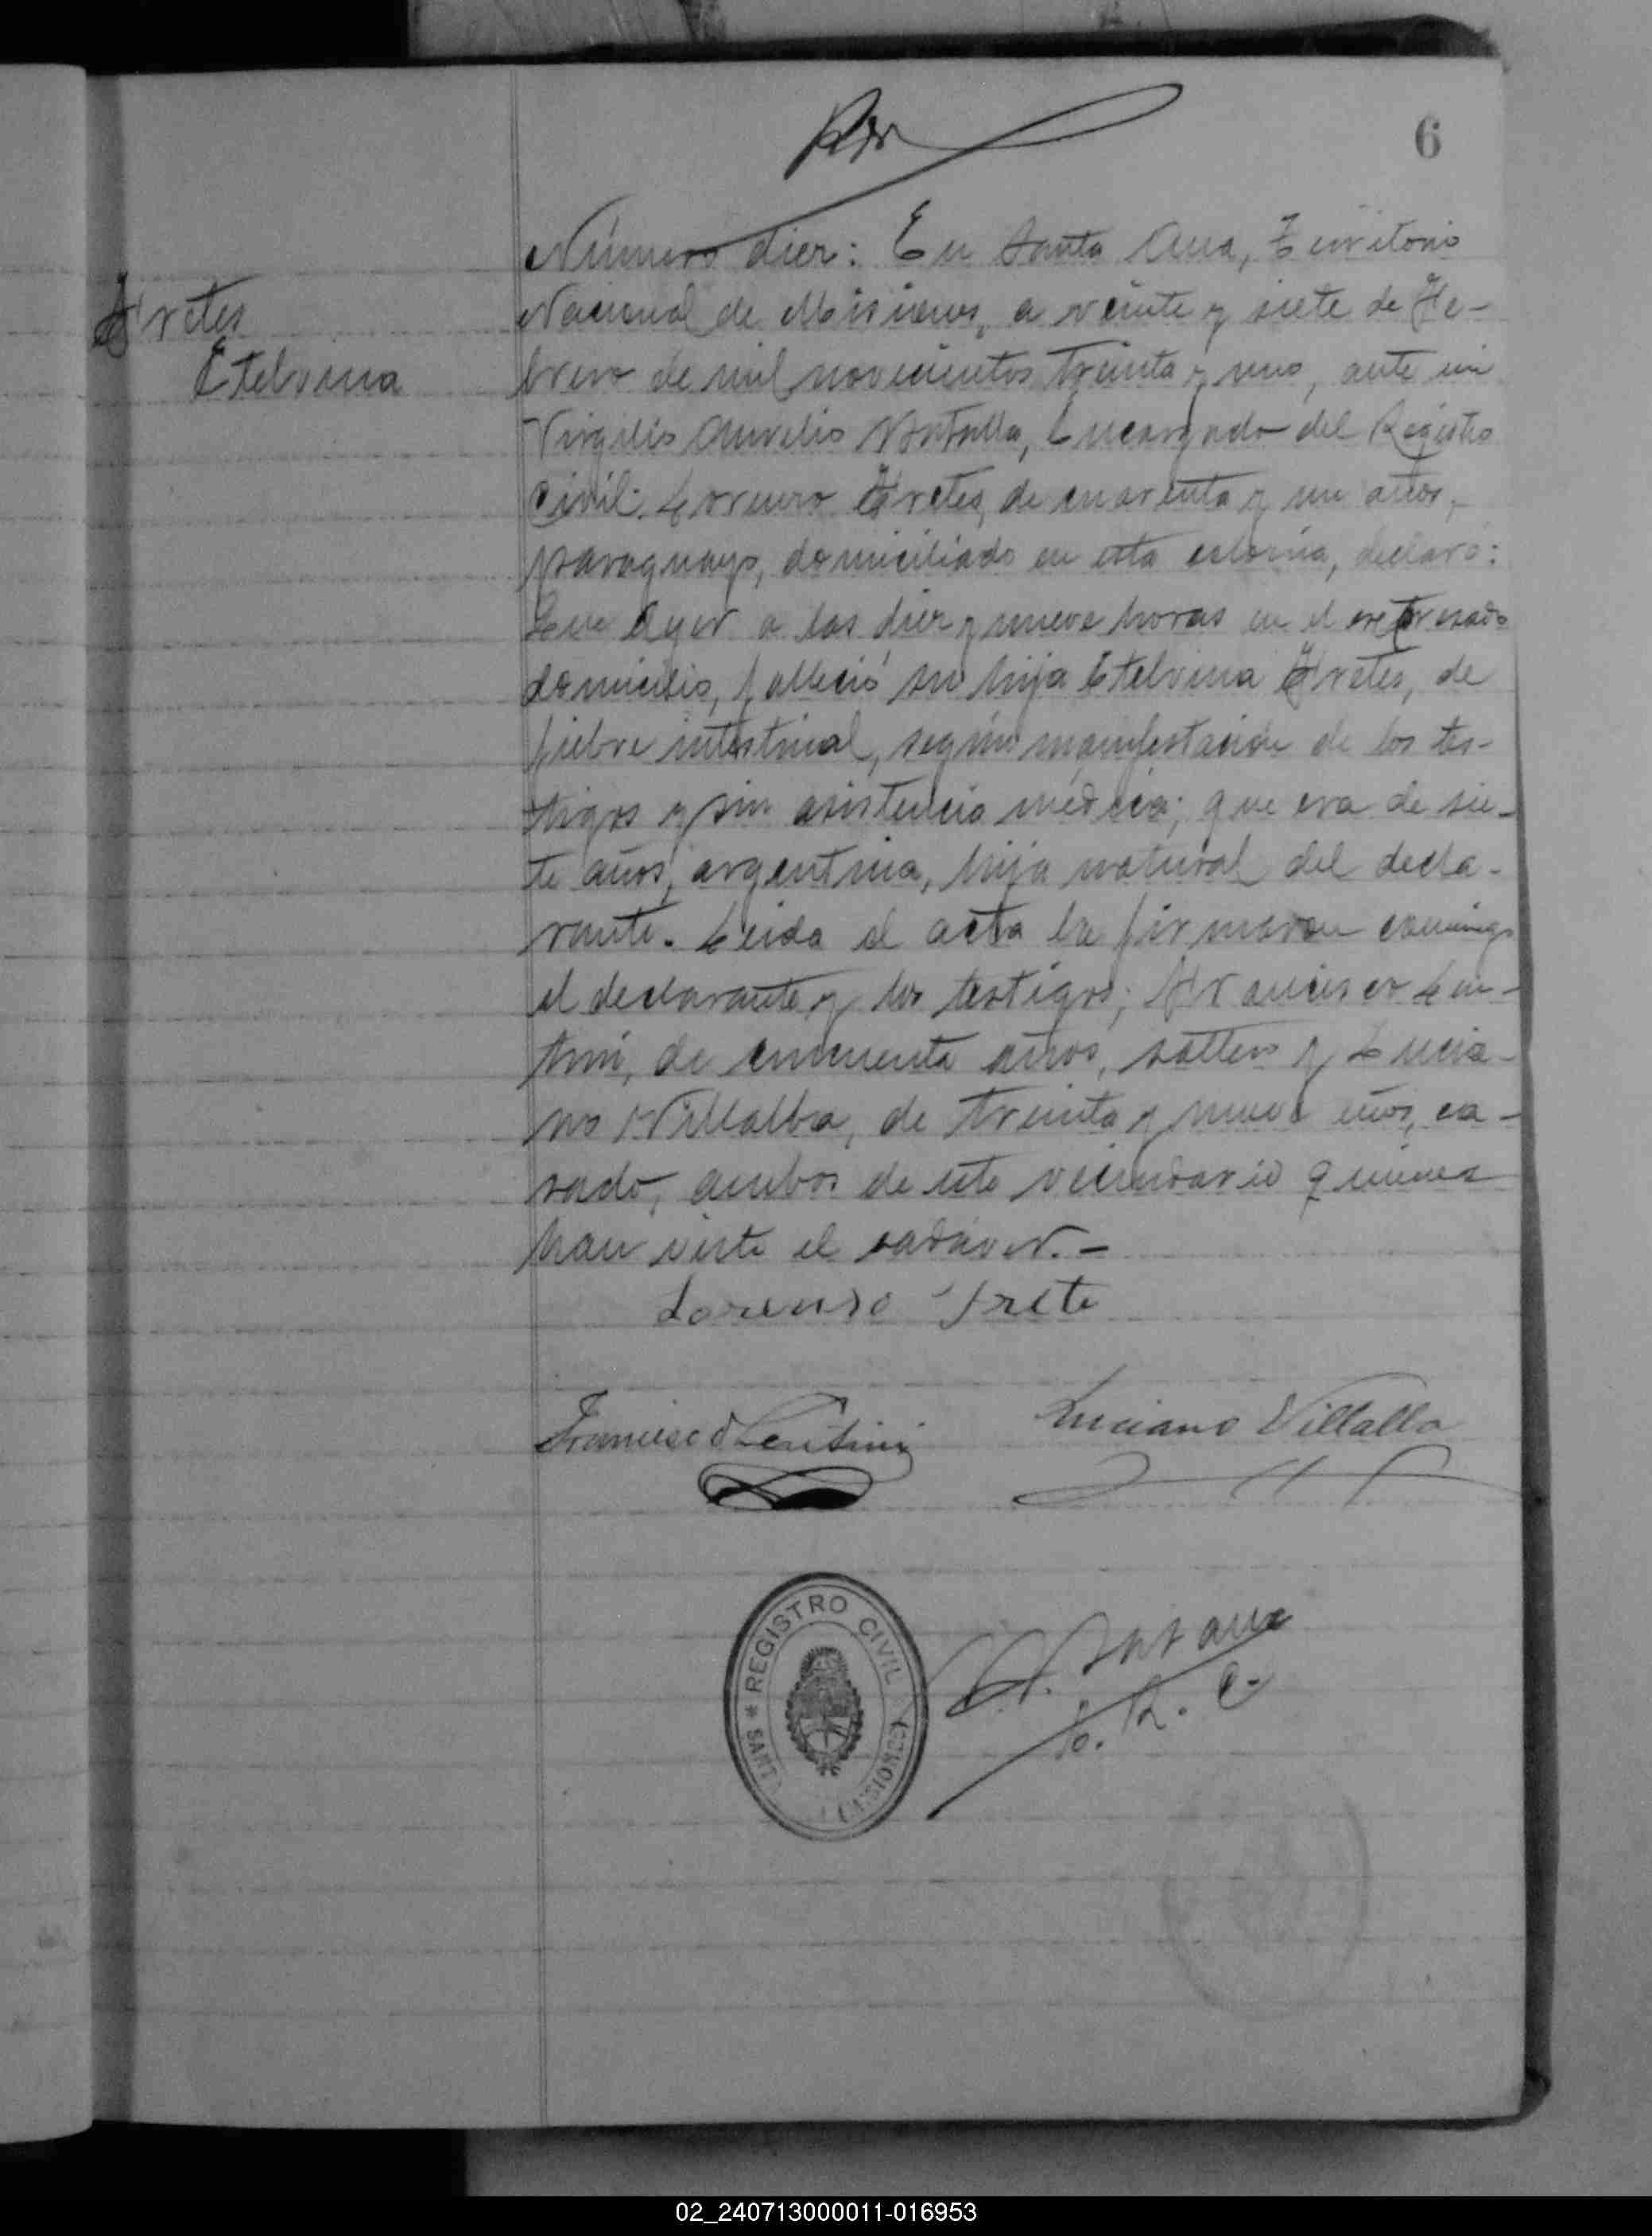 6
Número diez: En Santa Ana, Territorio
Fretes
Etelvina
Nacional de Misiones, a veinte y siete de Fe-
brero de mil novecientos treinta y uno, ante mi
Virgilio Aurelio Encargado del Registro
Civil: Lorenzo Fretes, de cuarenta y un años,
paraguayo, domiciliado en esta colonia, declaró:
Que ayer a las diez y nueve horas en el expresado
domicilio, falleció su hija Etelvina Fretes, de
fiebre intestinal, según manifestación de los tes-
tigos y sin asistencia médica; que era de sie-
te años, argentina, hija natural del decla-
rante. Leida el acta la firmaron conmigo
el declarante y los testigos; Francisco Len-
tini, de cincuenta años, soltero y Lucia-
no Villalba, de treinta y nueve años, ca-
sado, ambos de este vecindario quienes
han visto el cadáver.-
Lorenso Frete
Francisco Lentini
Luciano Villalba
REGISTRO CIVIL
* SANTA (MISIONES)
E. R. C.
02_240713000011-016953